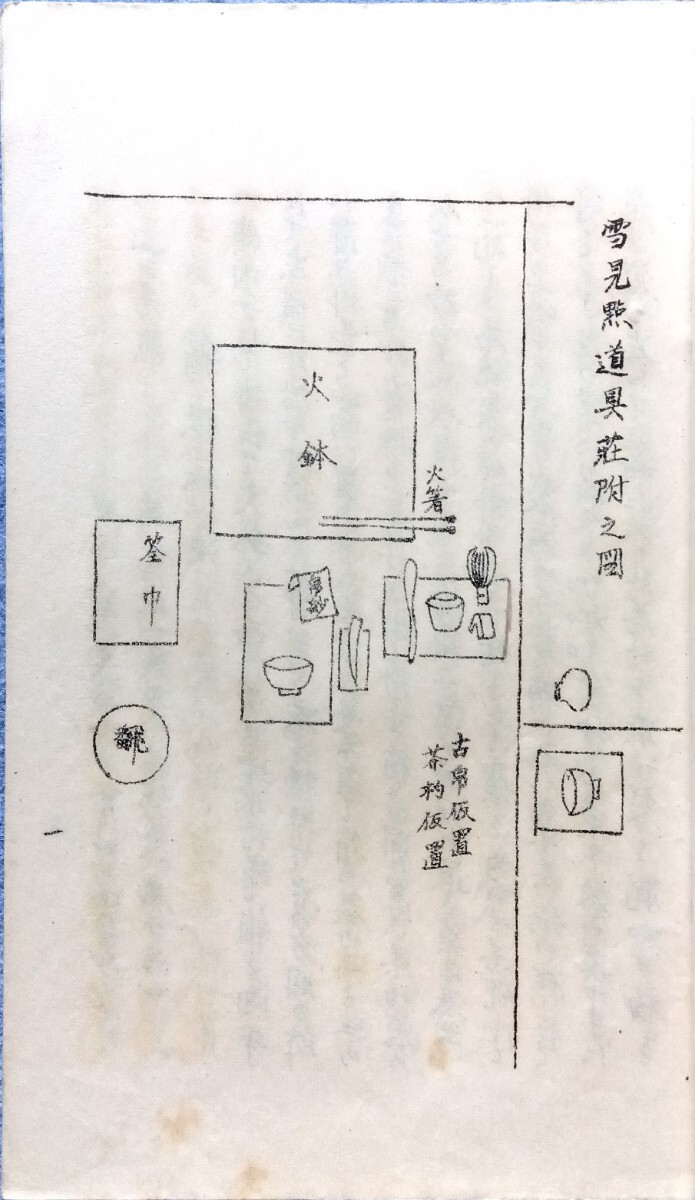 雪見點道具莊附之圖
火鉢
火箸
帛紗
筌巾
飜
古帛仮置
茶杓仮置